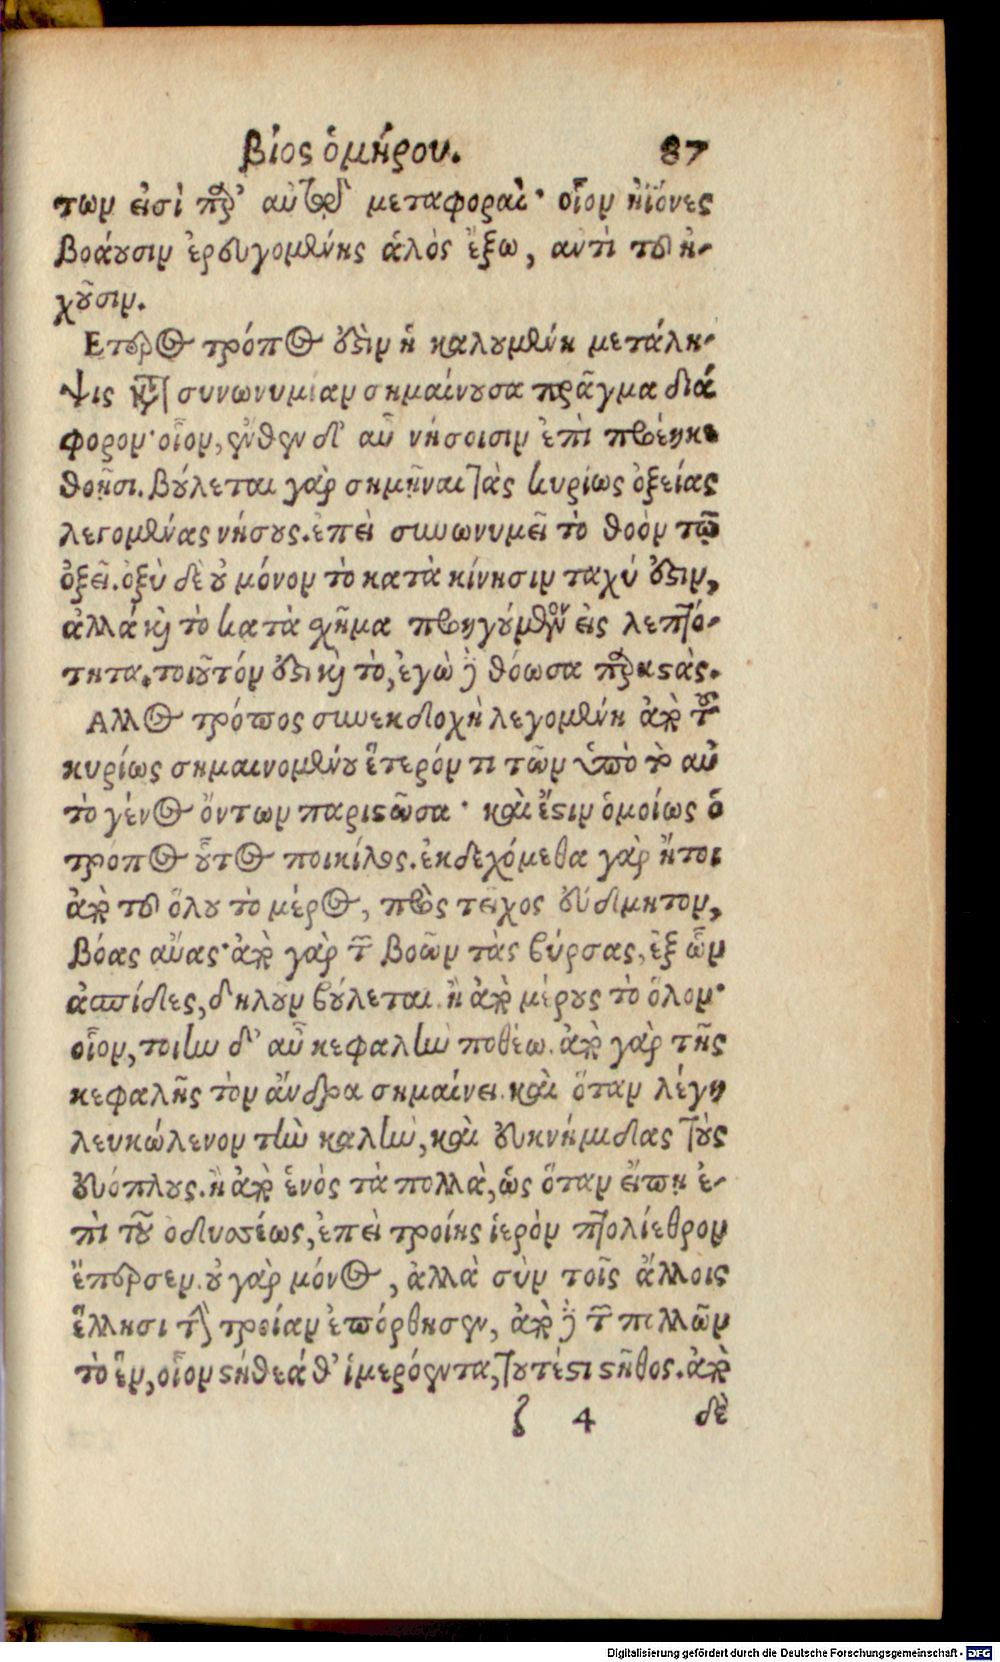 βίος ὁμήρου. 87
των εἰσὶ παρ' αὐτῷ μεταφοραὶ· οἷον ἠϊόνες
βοόωσιν ἐρευγομένης ἁλὸς ἔξω, αντὶ τοῦ ἠ-
χοῦσιν.
Ετερος τρόπος ἐστὶν ἡ καλουμένη μετάλη-
ψις κατὰ συνωνυμίαν σημαίνουσα πρᾶγμα διά
φορον· οἷον, ἔνθεν δ' αὖ νήσοισιν ἐπὶ προέηκε
θοῇσι. βούλεται γὰρ σημῆναι τὰς κυρίως ὀξείας
λεγομένας νήσους. ἐπεὶ συνωνυμεῖ τὸ θοὸν τῷ
ὀξεῖ. ὀξὺ δὲ οὐ μόνον τὸ κατὰ κίνησιν ταχύ ἐστιν,
ἀλλά καὶ τὸ κατὰ σχῆμα προηγούμενον εἰς λεπτό-
τητα. τοιοῦτόν ἐστι καὶ τὸ, ἐγὼ δὲ θόωσα παρ
Αλλος τρόπος συνεκδοχὴ λεγομένη ἀπὸ τοῦ
κυρίως σημαινομένου ἕτερόν τι τῶν ὑπὸ τὸ αὐ
τὸ γένος ὄντων παριστῶσα· καὶ ἔστιν ὁμοίως ὁ
τρόπος οὗτος ποικίλος. ἐκδεχόμεθα γὰρ ἤτοι
ἀπὸ τοῦ ὅλου τὸ μέρος, πρὸς τεῖχος ἐύδμητον,
βόας αὔας· ἀπὸ γὰρ τῶν βοῶν τὰς βύρσας, ἐξ ὧν
ἀσπίδες, δηλοῦν βούλεται. ἢ ἀπὸ μέρους τὸ ὅλον·
οἷον, τοίην δ' αὖ κεφαλὴν ποθέω. ἀπὸ γὰρ τῆς
κεφαλῆς τὸν ἄνδρα σημαίνει. καὶ ὅταν λέγῃ
λευκώλενον τὴν καλὴν, καὶ ἐυκνήμιδας τοὺς
εὐόπλους. ἢ ἀπὸ ἑνὸς τὰ πολλὰ, ὡς ὅταν εἴπῃ ἐ-
πὶ τοῦ ὀδυσσέως, ἐπεὶ τροίης ἱερὸν πτολίεθρον
ἔπερσεν. οὐ γὰρ μόνος, ἀλλὰ σὺν τοῖς ἄλλοις
ἕλλησι τὴν τροίαν ἐπόρθησεν, ἀπὸ δὲ τῶν πολλῶν
τὸ ἓν, οἷον στήθεά θ' ἱμερόεντα, τουτέστι στῆθος. ἀπὸ
ζ 4 δὲ
Digitalisierung gefördert durch die Deutsche Forschungsgemeinschaft - DFG